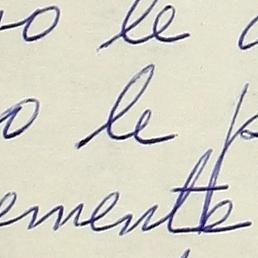 o le
o le p
emente